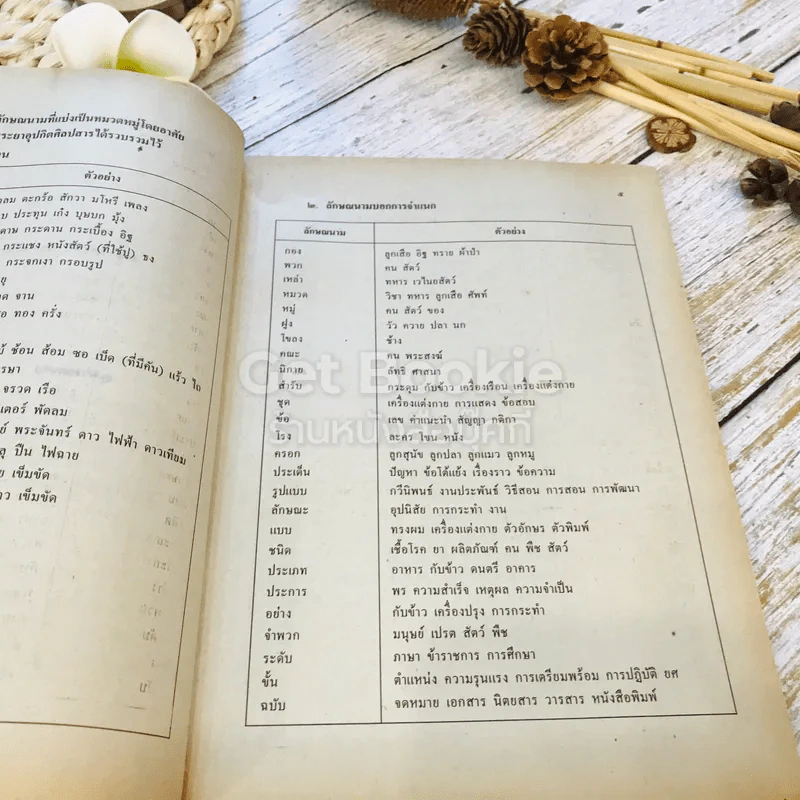 ลักษณนามที่แบ่งเป็นหมวดหมู่โดยอาศัย
ระยาอุปกิตศิลปสารได้รวบรวมไว้
ตัวอย่าง
ตะกร้อ สักวา มโหรี เพลง
ประทุน เก๋ง บุษบก มุ้ง
กระดาน กระเบื้อง อิฐ
กระแชง หนังสัตว์ (ที่ใช้ปู) ธง
กระจกเงา กรอบรูป
จาน
ทอง ครั่ง
ช้อน ส้อม ซอ เบ็ด (ที่มีคัน) แร้ว ไถ
จรวด เรือ
พัดลม
พระจันทร์ ดาว ไฟฟ้า ดาวเทียม
ปืน ไฟฉาย
เข็มขัด
เข็มขัด
๒. ลักษณนามบอกการจำแนก ๕
ลักษณนาม ตัวอย่าง
กอง ลูกเสือ อิฐ ทราย ผ้าป่า
พวก คน สัตว์
เหล่า ทหาร เวไนยสัตว์
หมวด วิชา ทหาร ลูกเสือ ศัพท์
หมู่ คน สัตว์ ของ
ฝูง วัว ควาย ปลา นก
โขลง ช้าง
คณะ คน พระสงฆ์
นิกาย ลัทธิ ศาสนา
สำรับ กระดุม กับข้าว เครื่องเรือน เครื่องแต่งกาย
ชุด เครื่องแต่งกาย การแสดง ข้อสอบ
ข้อ เลข คำแนะนำ สัญญา กติกา
โรง ละคร โขน หนัง
ครอก ลูกสุนัข ลูกปลา ลูกแมว ลูกหมู
ประเด็น ปัญหา ข้อโต้แย้ง เรื่องราว ข้อความ
รูปแบบ กวีนิพนธ์ งานประพันธ์ วิธีสอน การสอน การพัฒนา
ลักษณะ อุปนิสัย การกระทำ งาน
แบบ ทรงผม เครื่องแต่งกาย ตัวอักษร ตัวพิมพ์
ชนิด เชื้อโรค ยา ผลิตภัณฑ์ คน พืช สัตว์
ประเภท อาหาร กับข้าว ดนตรี อาคาร
ประการ พร ความสำเร็จ เหตุผล ความจำเป็น
อย่าง กับข้าว เครื่องปรุง การกระทำ
จำพวก มนุษย์ เปรต สัตว์ พืช
ระดับ ภาษา ข้าราชการ การศึกษา
ขั้น ตำแหน่ง ความรุนแรง การเตรียมพร้อม การปฏิบัติ ยศ
ฉบับ จดหมาย เอกสาร นิตยสาร วารสาร หนังสือพิมพ์
Get Bookie
ร้านหนังสือเก็ทบุ๊คกี้